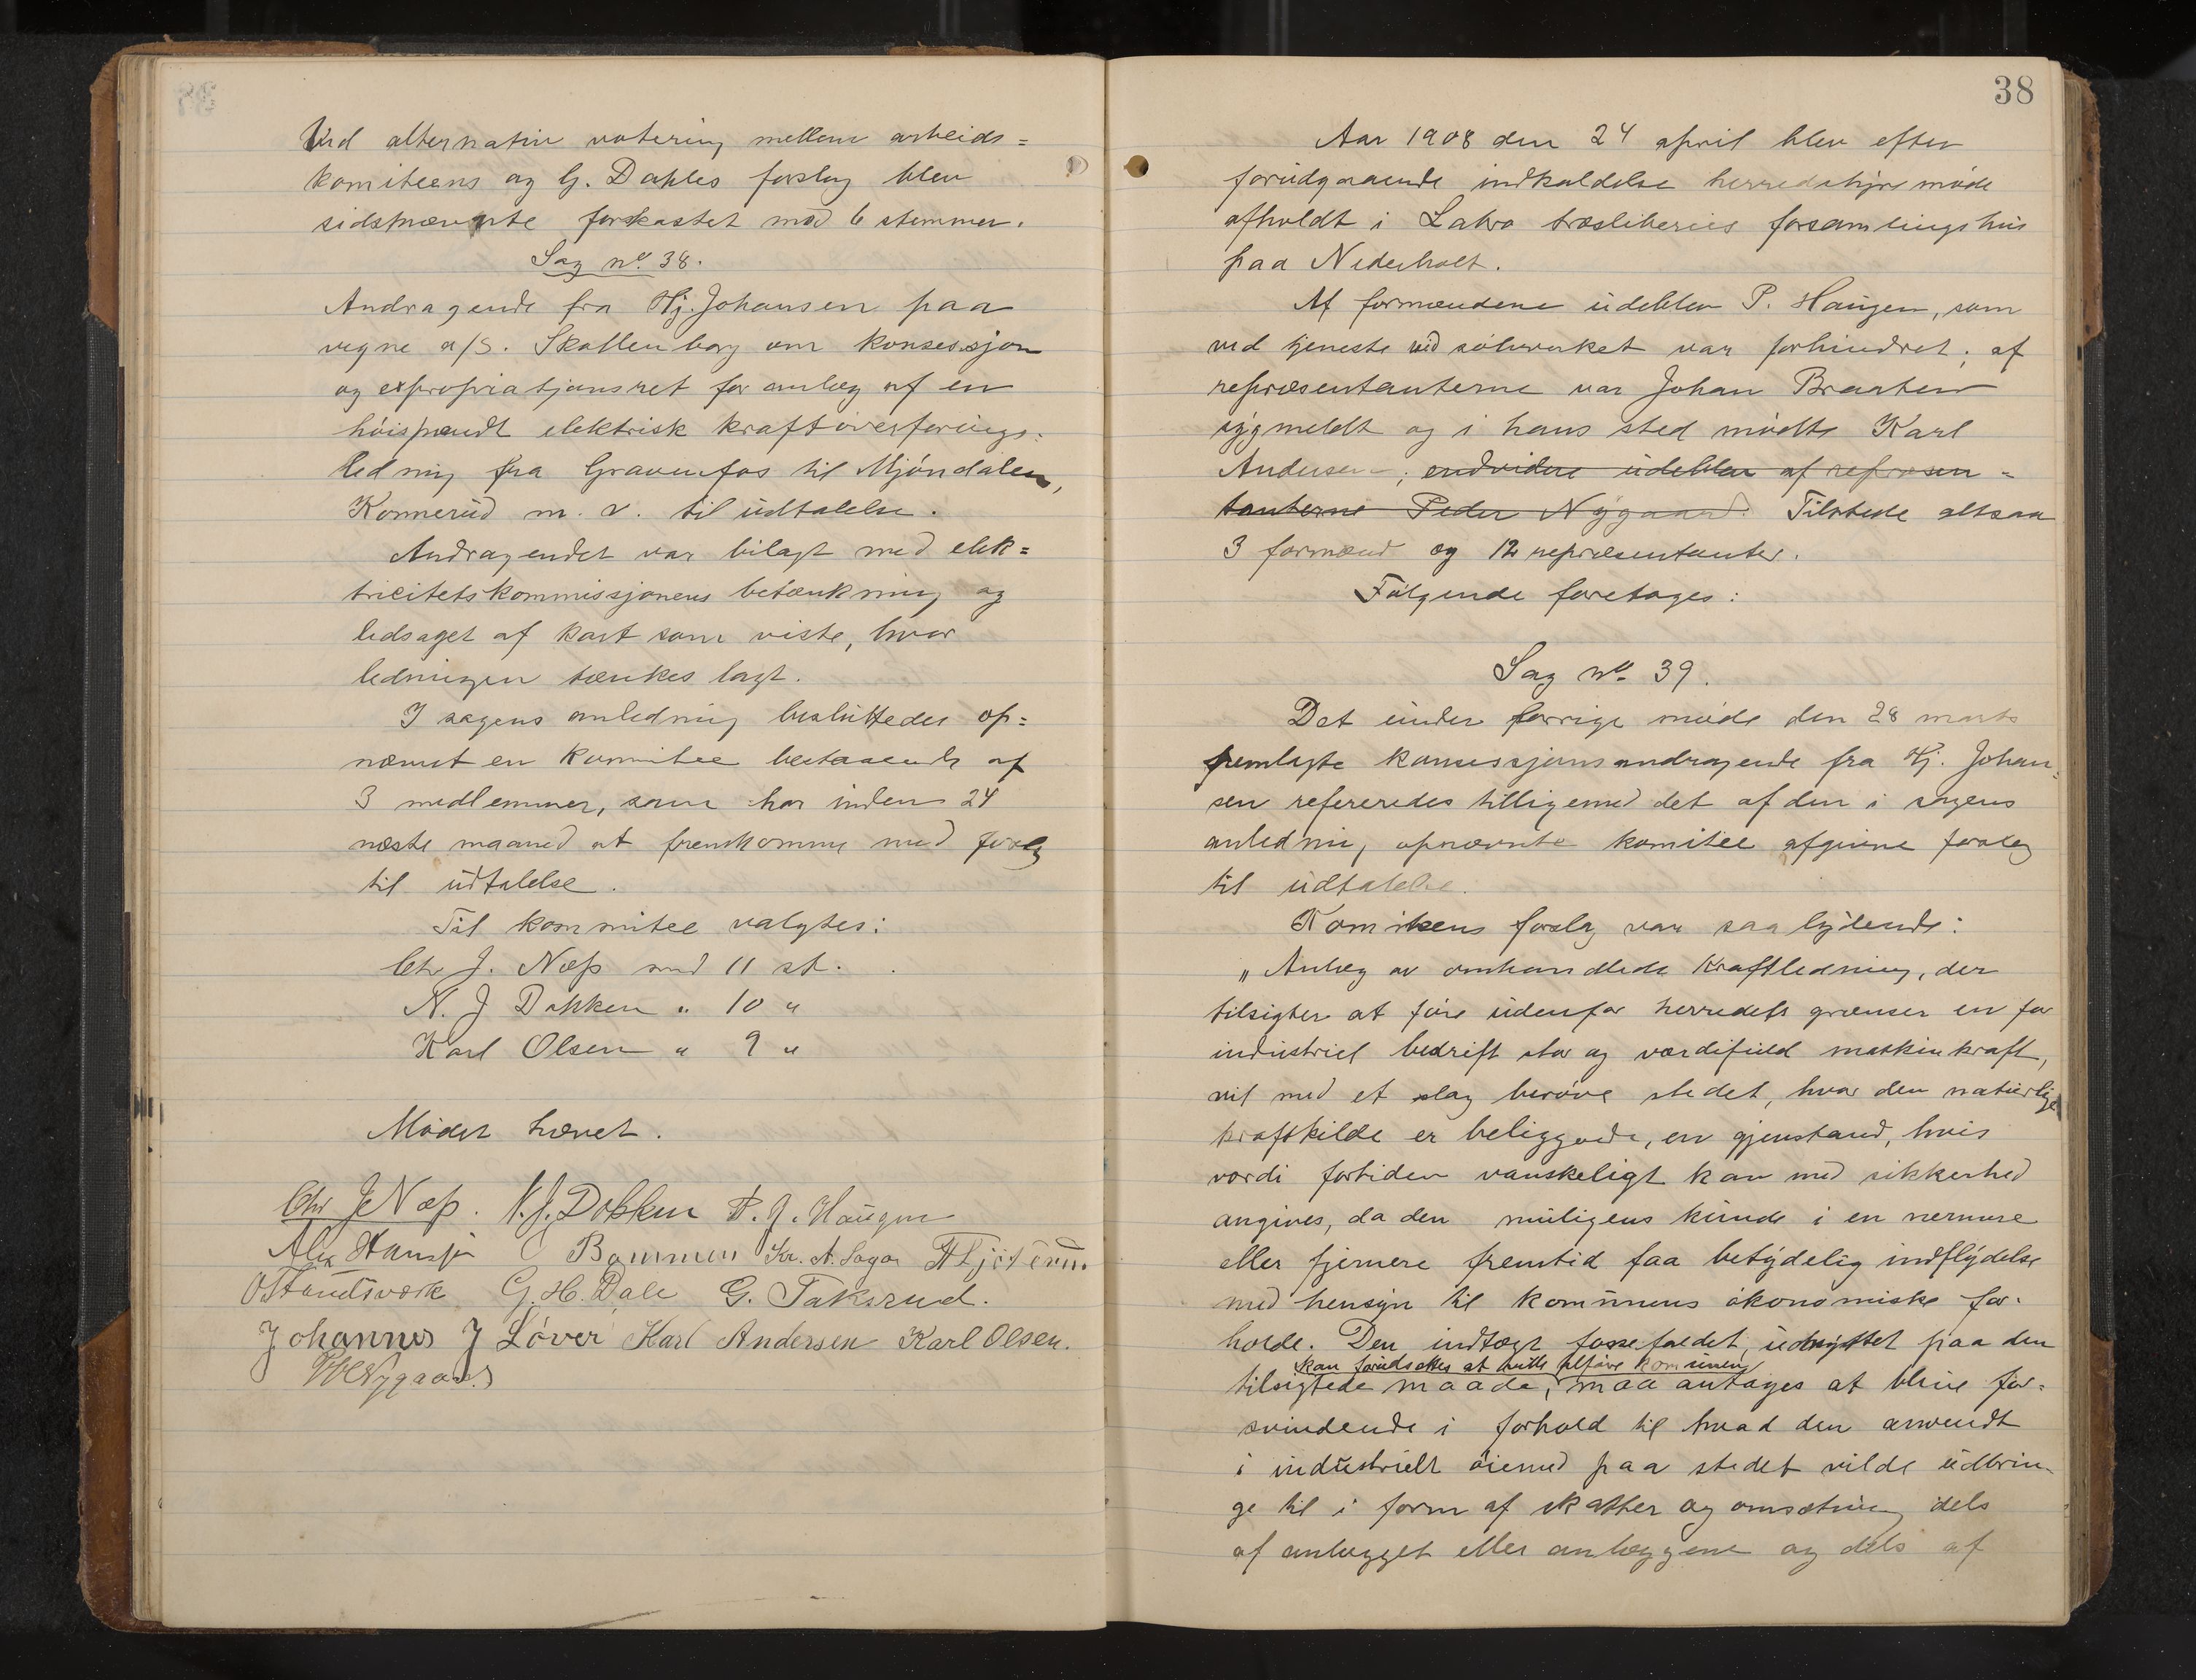 Ved alternativ votering mellem arbeids=
komiteens og G. Dahles forslag blev
sidstnævnte forskastet mod 6 stemmer.
Sag no. 38.
Andragende fra Hj. Johansen paa
vegne a/s. Skallenborg om konsessjon
og expropriatjonsret for anlæg af en
høispændt elektrisk kraftoverførings=
ledning fra Gravenfos til Mjøndalen,
Konnerud m. v. til udtalelse.
Andragendet var bilagt med elek=
tricitetskommissjonens betænkning og
ledsaget af kart som viste, hvor
ledningen tænkes lagt.
I sagens anledning besluttedes op=
nævnt en kommitee bestaaende af
3 medlemmer, som har inden 24
næste maaned at fremkomme med forslag
til udtalelse.
Til kommitee valgtes:
Chr J. Næss med 11 st.
N. J Dokken " 10 "
Karl Olsen " 9 "
Mødet hævet.
Chr J Næss. N. J. Dokken P. J. Haugen
Alex Hansen O Bommen Kr. A. Saga
O Strandsværk G. H. Dale G. Taksrud.
Johannes J Løver Karl Andersen Karl Olsen.
Nygaard
38
Aar 1908 den 24 april blev efter
forudgaaende indkaldelse herredstyremøde
afholdt i Labro træsliberies forsamlingshus
paa Nederholt.
Af formændene udeblev P. Haugen, som
ved tjeneste ved sølvverket var forhindret; af
repræsentanterne var Johan Braaten
sygmeldt og i hans sted mødte Karl
Andersen; endvidere udeblev af repræsen=
tanterne Peder Nygaard. Tilstede altsaa
3 formænd og 12 repræsentanter.
Følgende foretages:
Sag no. 39.
Det under forrige møde den 28 marts
fremlagte konsessjonsandragende fra Hj. Johan=
sen refereredes tilligemed det af den i sagens
anledning opnævnte komitee afgivne forslag
til udtalelse.
Komiteens forslag var saalydende:
"Anlæg av omhandlede kraftledning, der
tilsigter at føre udenfor herredets grænser en for
industriel bedrift stor og værdifuld maskinkraft,
vil med et slag berøve stedet, hvor den naturlige
kraftkilde er beliggende, en gjenstand, hvis
værdi fortiden vanskeligt kan med sikkerhed
angives, da den muligens kunde i en nærmere
eller fjernere fremtid faa betydelig indflydelse
med hensyn til kommunens økonomiske for-
holde. Den indtægt fossefaldet, udnyttet paa den
kan forudsettes at ville tilføre kommunen
tilsigtede maade, maa antages at blive for-
svindende i forhold til hvad den anvendt
i industrielt øiemed paa stedet vilde udbrin-
ge til i form af skatter og omsætning dels
af anlægget eller anlæggene og dels af